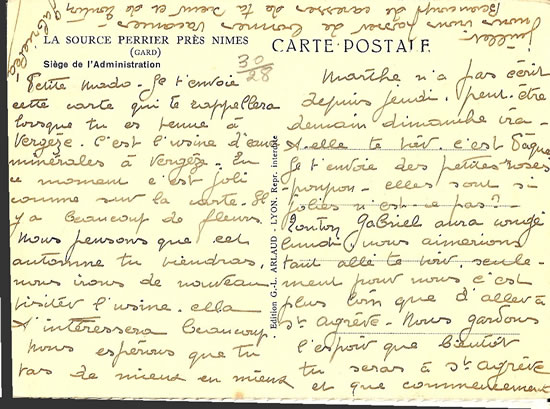 LA SOURCE PERRIER PRÈS NIMES
(GARD)
Siège de l'Administration
CARTE POSTALE
30/28
Petite Mado. Je t'envoie
cette carte qui te rappellera
lorsque tu es venue à
Vergèze. C'est l'usine d'eau
minérales à Vergèz. En
ce moment c'est joli
comme sur la carte. Il
y a beaucoup de fleurs.
Nous pensons que cet
automne tu viendras,
nous irons de nouveau
visiter l'usine. ella
t'intéressera beaucoup.
Nous espérons que tu
vas de mieux en mieux
Edition G.-L. ARLAUD - LYON. Repr. interdite
Marthe n'a pas écrit
depuis jeudi. Peut être
demain dimanche ira-
t-elle te voir. c'est Pâque
Je t'envoie des petites roses
pompon - elles sont si
jolies n'est-ce pas?
Tonton Gabriel aura congé
lundi, nous aimerions
tant aller te voir, seule-
ment pour nous c'est
plus loin que d'aller à
St Agrève. Nous gardons
l'espoir que bientôt
tu seras à St Agrève
et que commencement
juillet nous irons passer de bonnes vacances
Beaucoup de caresses de ta
et de tonton
Gabriel